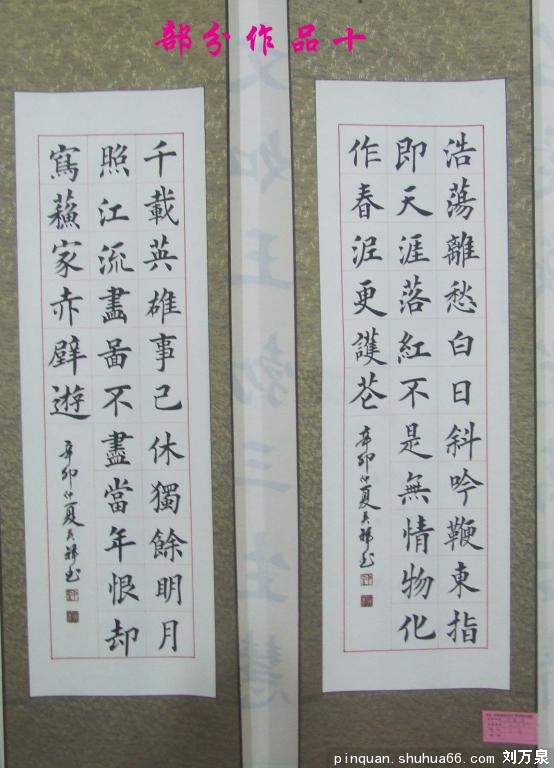 部分作品十
浩蕩離愁白日斜吟鞭東指
即天涯落紅不是無情物化
作春泥更護花
辛卯仲夏
文如王勃三生慧
千載英雄事已休獨餘明月
照江流畫啚不盡當年恨却
寫蘓家赤壁遊
辛卯仲夏
pinquan.shuhua66.com 刘万泉